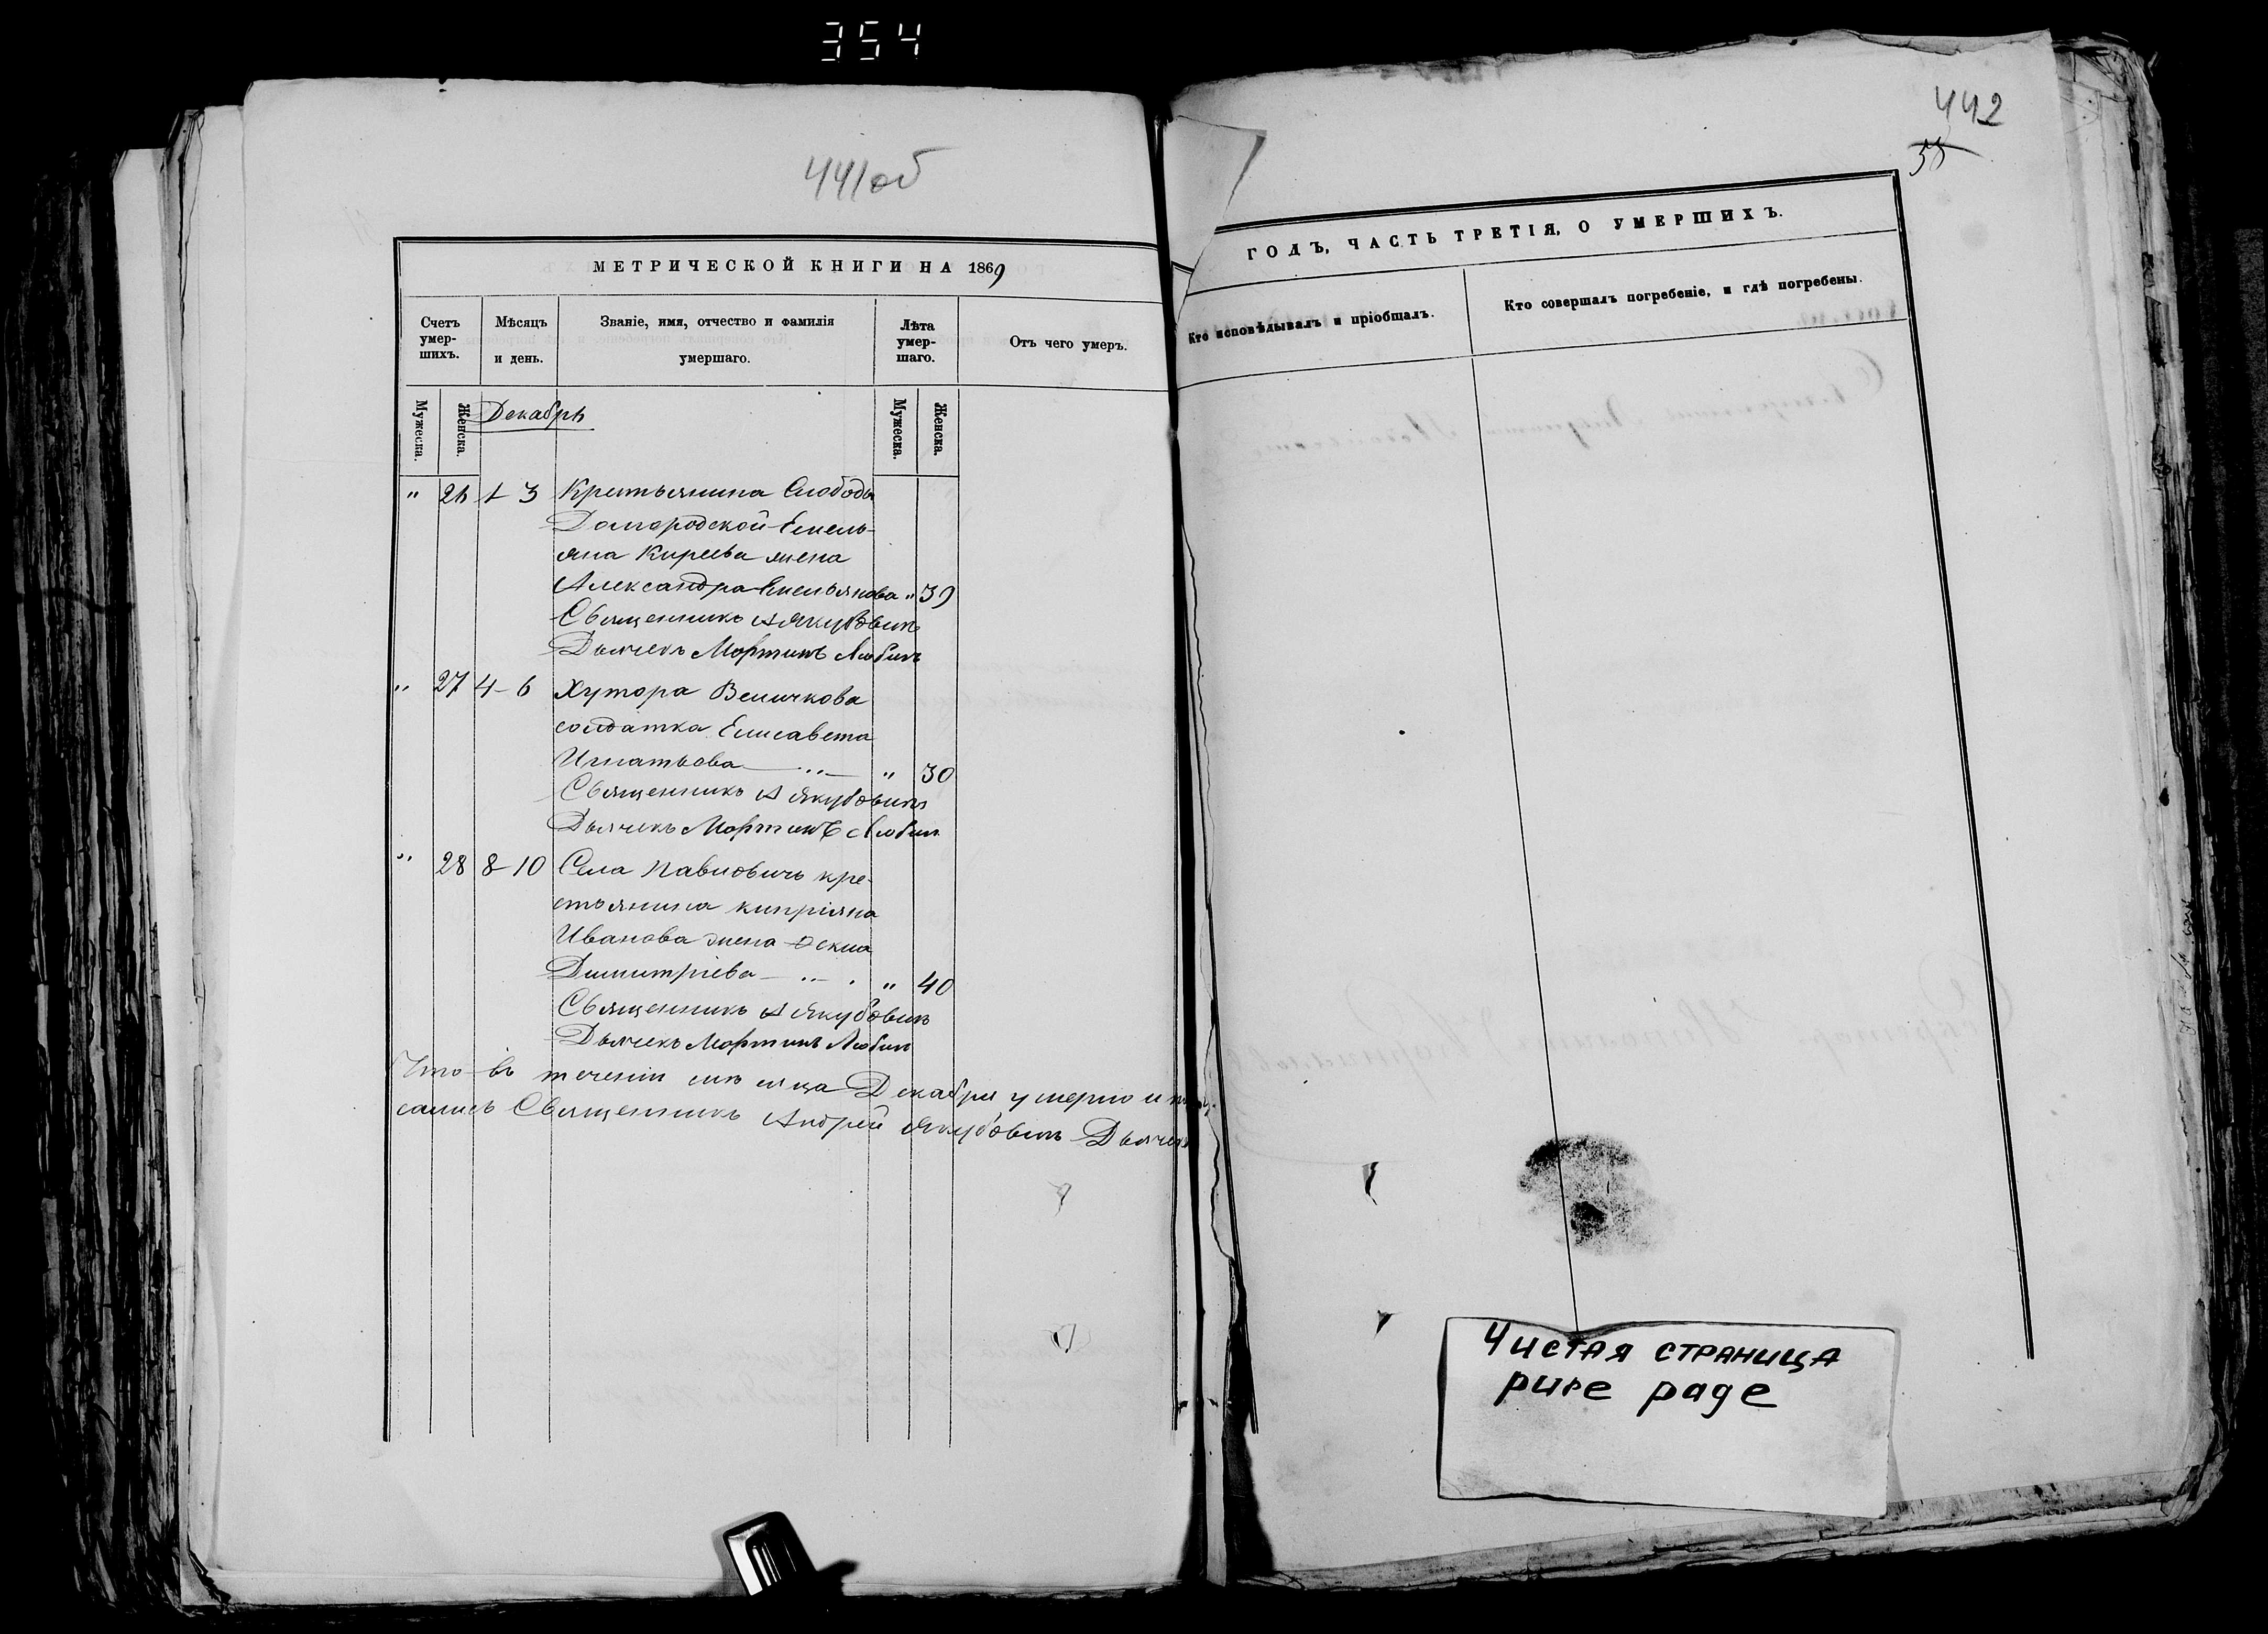 354
441об
МЕТРИЧЕСКОЙ КНИГИ НА 1869
Счетъ умершихъ.
Мѣсяцъ и день.
Званіе, имя, отчество и фамилія умершаго.
Лѣта умершаго.
Отъ чего умеръ.
Мужеска.
Женска.
Мужеска.
Женска.
Декабрь
" 26 1-3 Крестьянина Слободы
Долгородской Емель-
яна Киреева жена
Александра Емельянова " 39
Священникъ А Якубовичъ
Дьячекъ Мартинъ Любич
" 27 4-6 Хутора Величкова
солдатка Елисавета
Игнатьова " 30
Священникъ А Якубовичъ
Дьячекъ Мартинъ Любич
" 28 8-10 Села Павловичъ кре-
стьянина Кипріяна
Иванова жена
Димитріева " 40
Священникъ А Якубовичъ
Дьячекъ Мартинъ Любич
Что въ теченіи мѣсяца Декабря умерло и
Священникъ Андрей Якубовичъ Дьячекъ
442
55
ГОДЪ, ЧАСТЬ ТРЕТІЯ, О УМЕРШИХЪ.
Кто исповѣдывалъ и пріобщалъ.
Кто совершалъ погребеніе, и гдѣ погребены.
Чистая страница
pure page